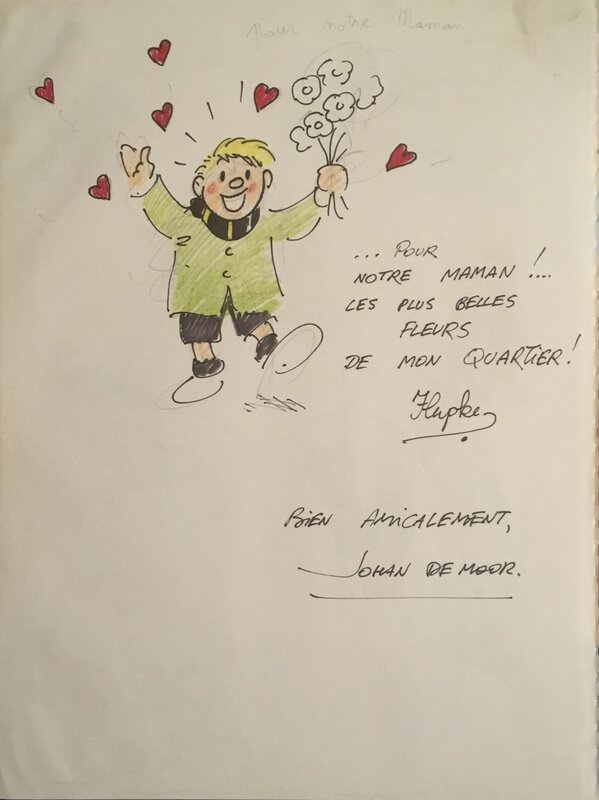 Pour notre Maman
... POUR
NOTRE MAMAN !...
LES PLUS BELLES
FLEURS
DE MON QUARTIER !
Flupke
BIEN AMICALEMENT,
JOHAN DE MOOR.